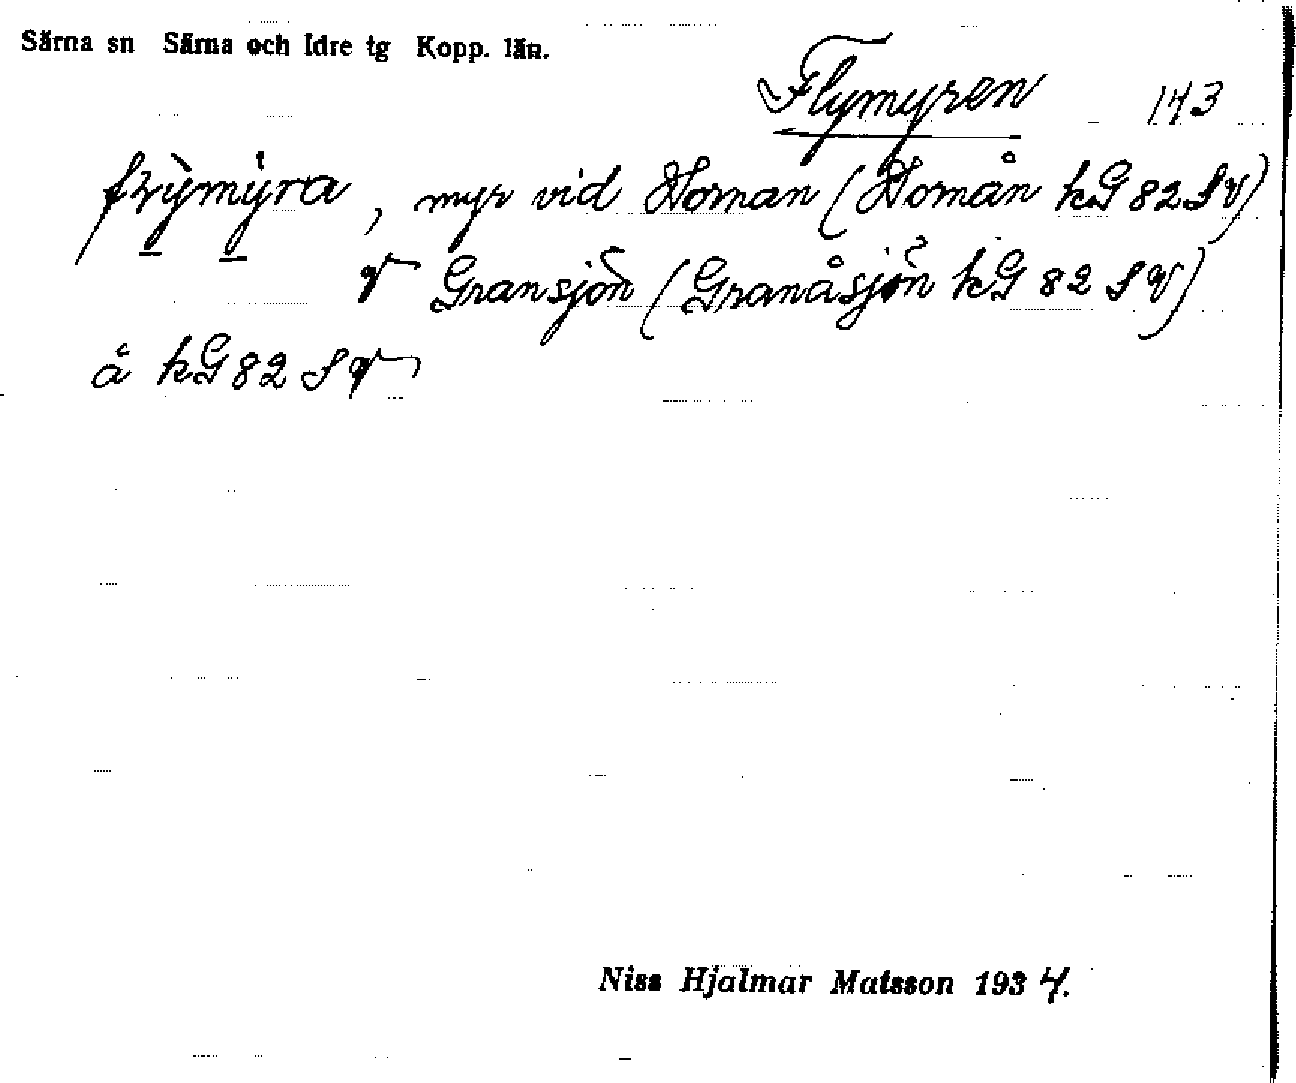 Särna sn Särna och Idre tg Kopp. län.
Flymyren 143
myr vid Homan (Homån kG 82 SV)
V Gransjön (Granåsjön kG 82 SV)
å kG 82 SV
Niss Hjalmar Matsson 1934.